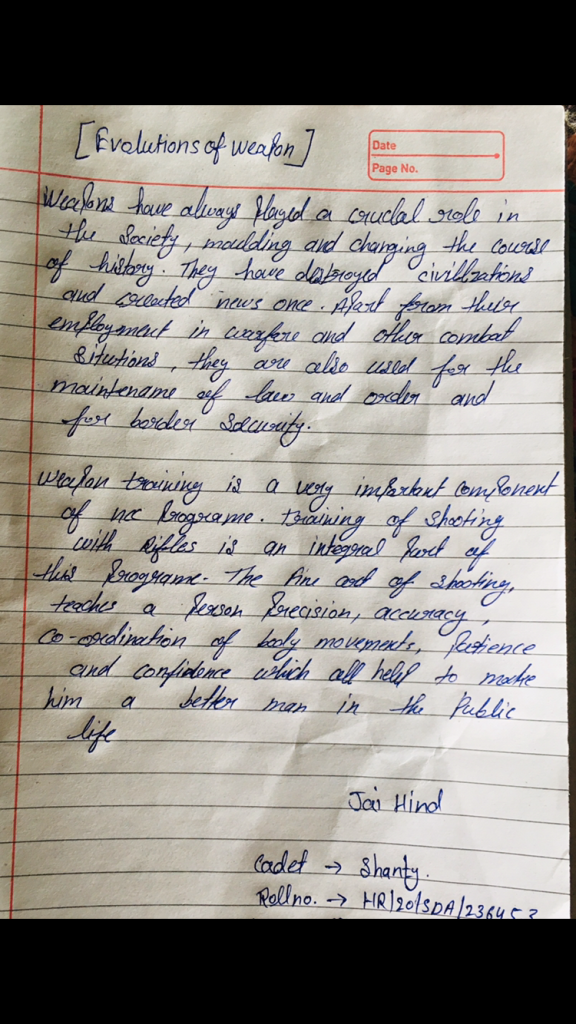 [Evolutions of weapon]
Date
Page No.
Weapons have always played a crucial role in
the society, moulding and changing the course
of history. They have destroyed civillizations
and created news once. Apart from their
employment in warfare and other combat
situtions, they are also used for the
maintename of law and order and
for border security.
Weapon training is a very important component
of ncc programe. training of shooting
with Rifles is an integral part of
this programe. The fine art of shooting,
teaches a person precision, accuracy,
co-ordination of body movements, patience
and confidence which all help to make
him a better man in the public
life
Jai Hind
Cadet → Shanty.
Rollno. → HR/20/SDA/236453